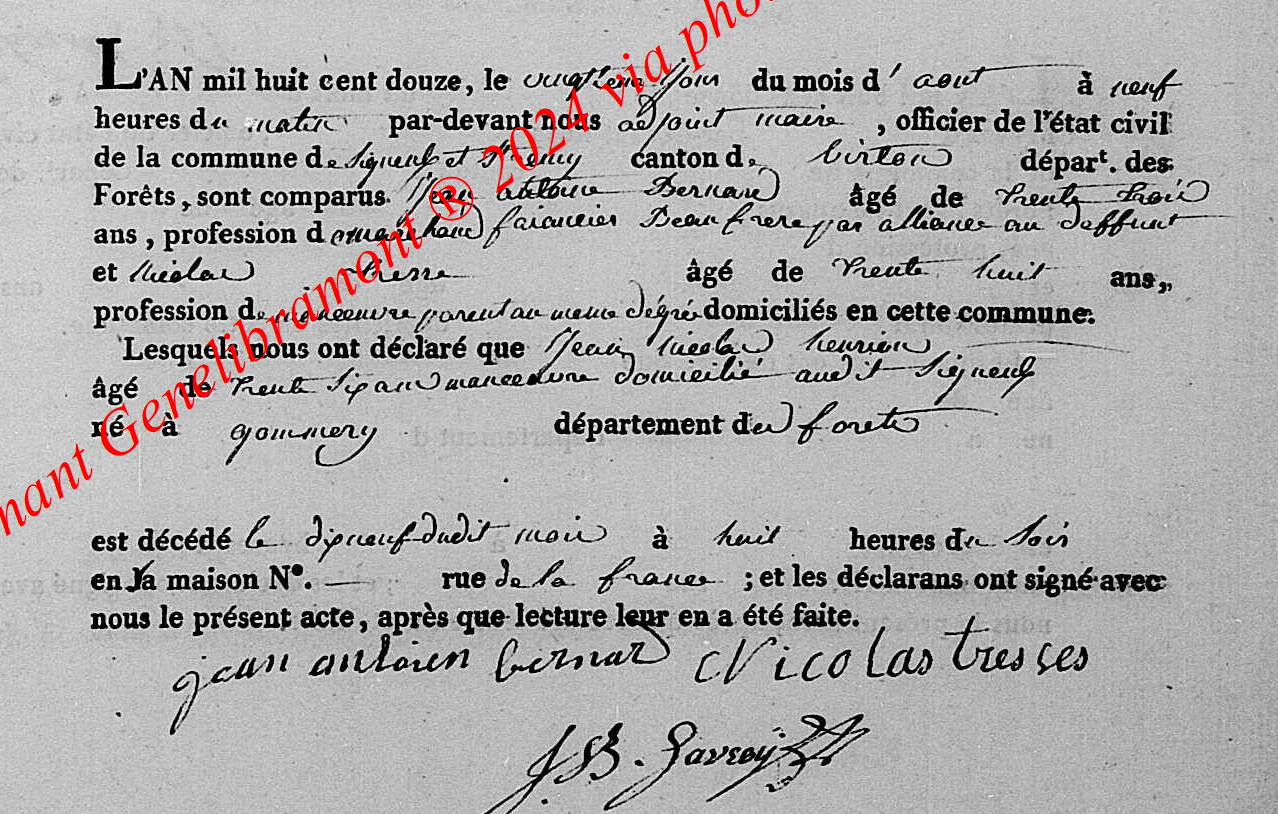 L'AN mil huit cent douze, le vingtieme jour du mois d' aout à neuf
heures du matin par-devant nous adjoint maire, officier de l'état civil
de la commune de Signeulx et St remy canton de Virton départ. des
Forêts, sont comparus Jean antoine Bernard âgé de trente trois
ans, profession de marchand faiancier Beaufrere par alliance au deffunt
et Nicolas âgé de trente huit ans,
profession de manoeuvre parent au meme dégré domiciliés en cette commune.
Lesquels nous ont déclaré que Jean Nicolas henrion
âgé de trente six ans manoeuvre domicilié audit Signeulx
né à gommery département des forets
est décédé le dixneuf dudit mois à huit heures du soir
en la maison N°. — rue de la france ; et les déclarans ont signé avec
nous le présent acte, après que lecture leur en a été faite.
jean antoien bernard Nicolas
JB. Gavroy
nant Genelibramont ® 2024 via pho